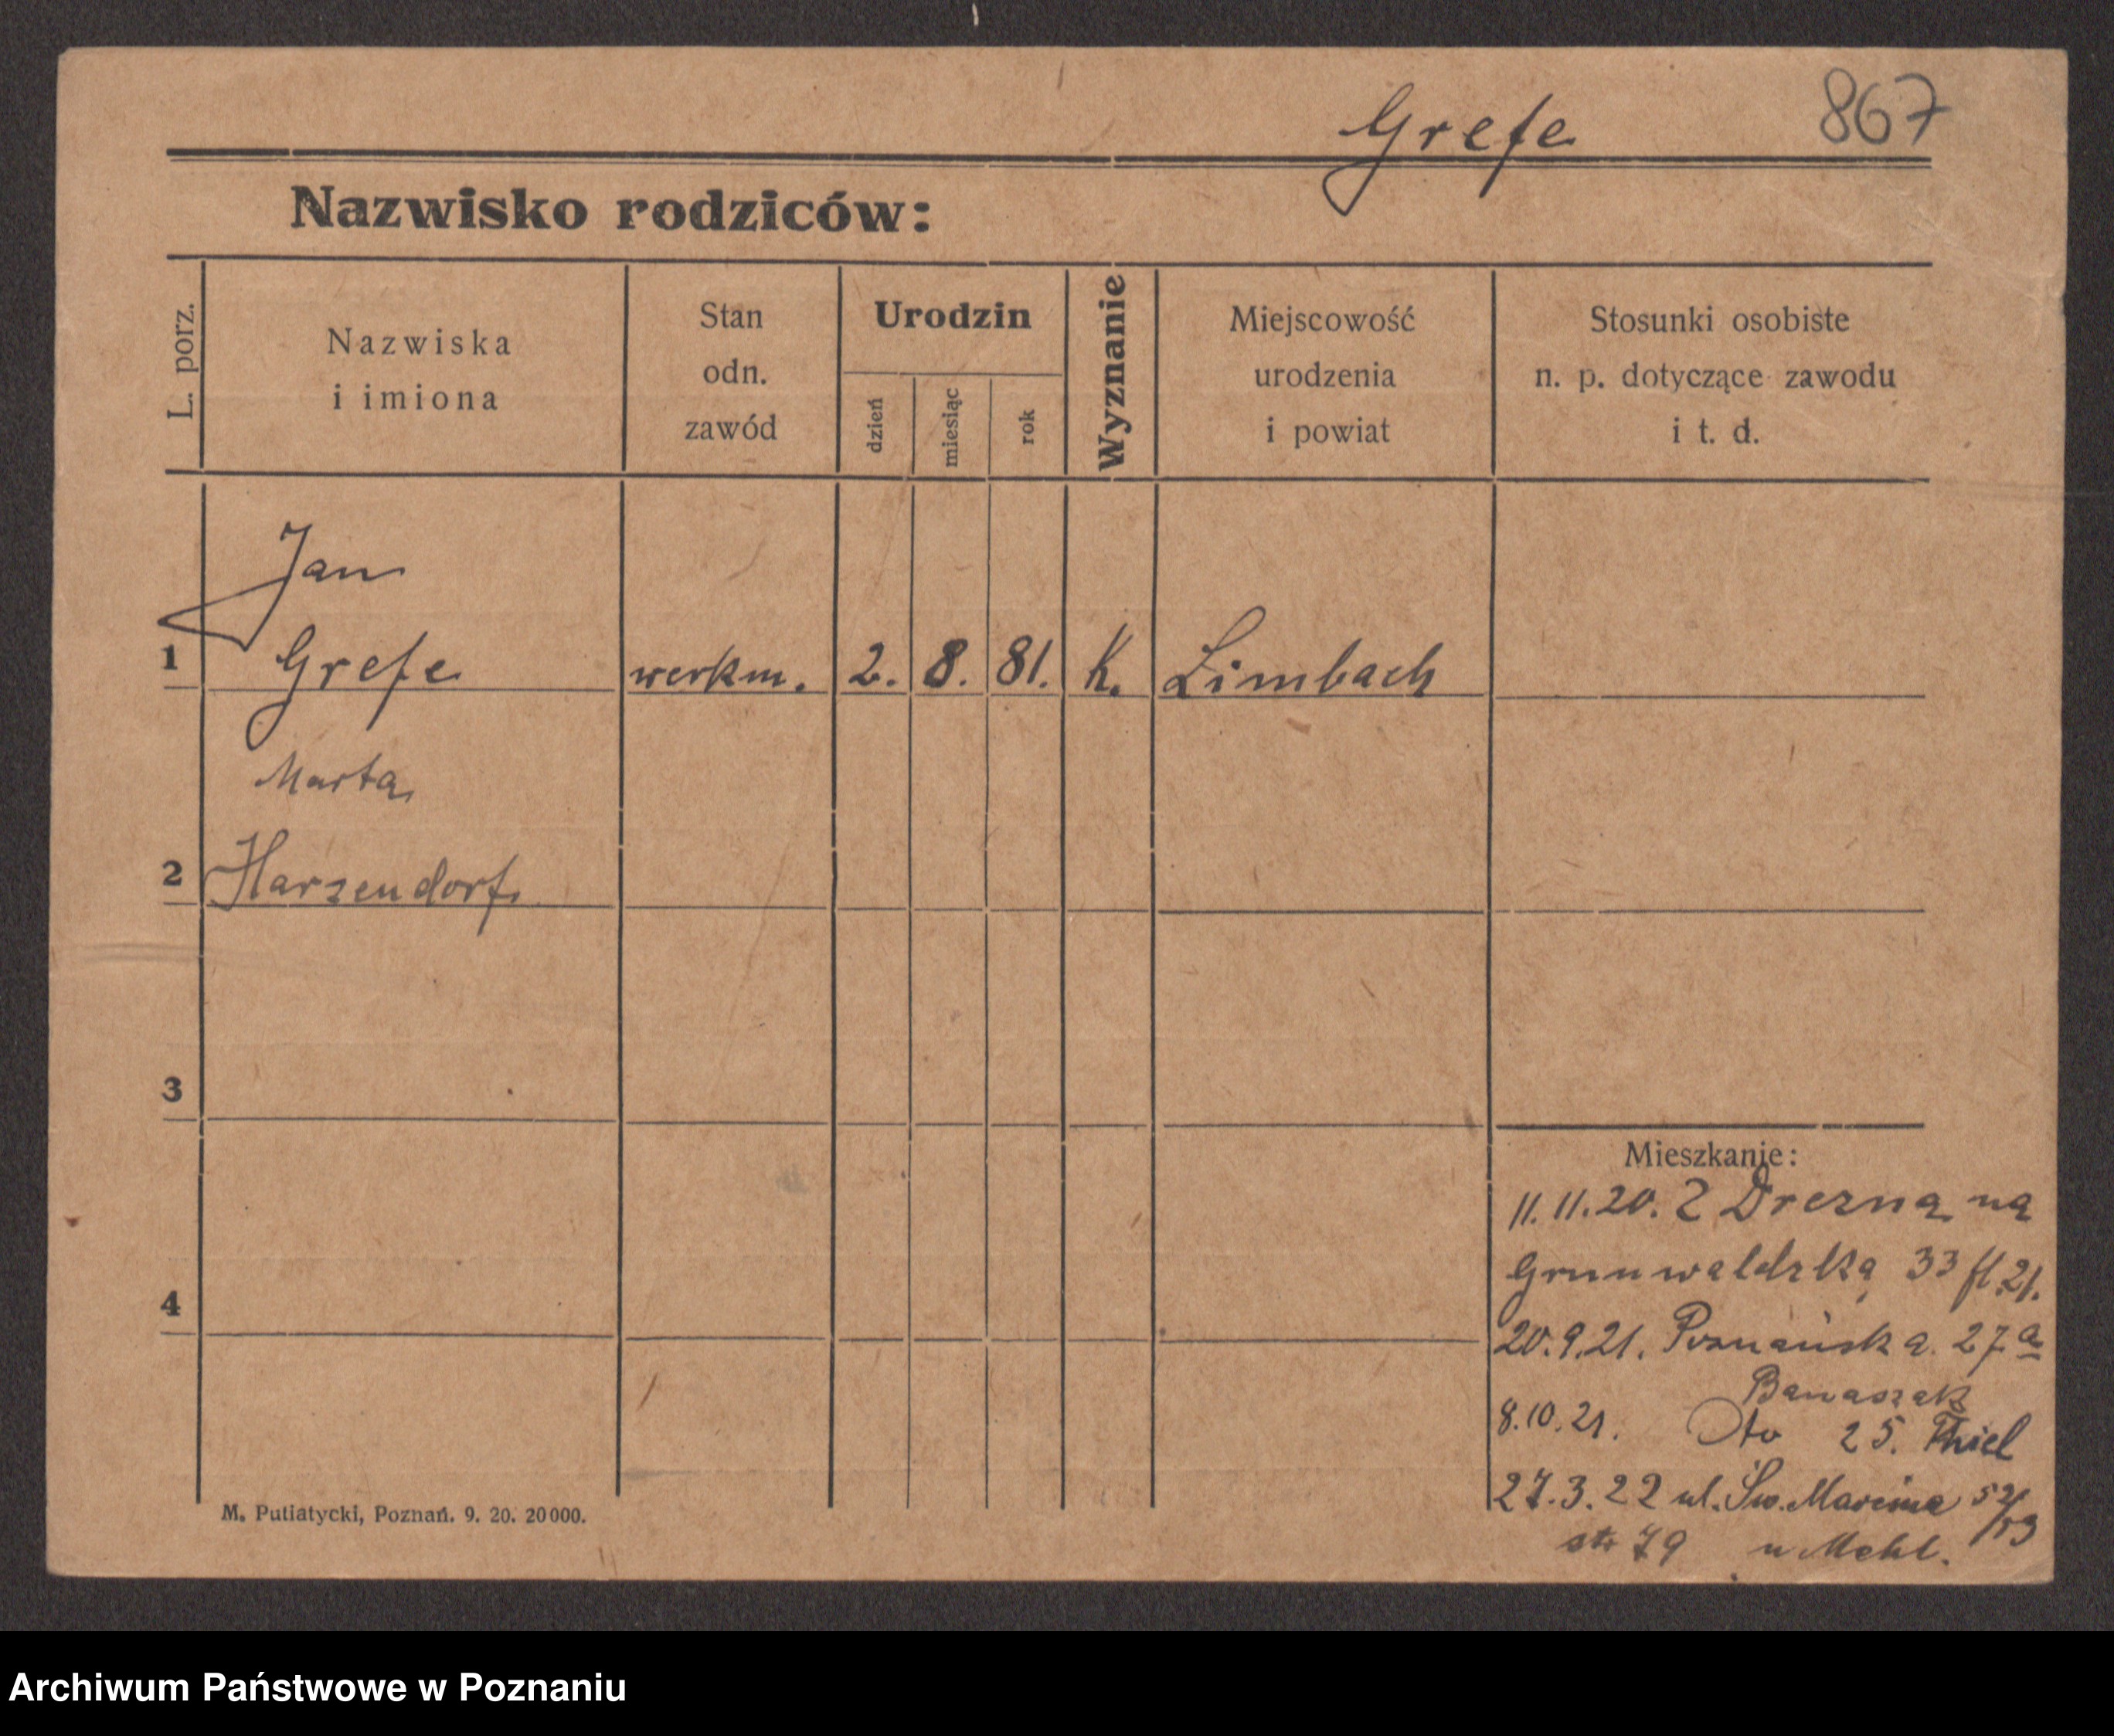 Grefe 867
Nazwisko rodziców:
L. porz.
Nazwiska
i imiona
Stan
odn.
zawód
Urodzin
dzień
miesiąc
rok
Wyznanie
Miejscowość
urodzenia
i powiat
Stosunki osobiste
n. p. dotyczące zawodu
i t. d.
Jan
1 Grefe werkm. 2. 8. 81. K. Limbach
Marta
2 Harzendorf
3
4
Mieszkanie:
11.11.20. Z Drezna na
Grunwaldzka 33
20.9.21. Poznańska 27a
Banaszak
8.10.21. dto 25. Thiel
27.3.22 ul. Św. Marcina
79 u Mehl.
M. Putiatycki, Poznań. 9. 20. 20000.
Archiwum Państwowe w Poznaniu